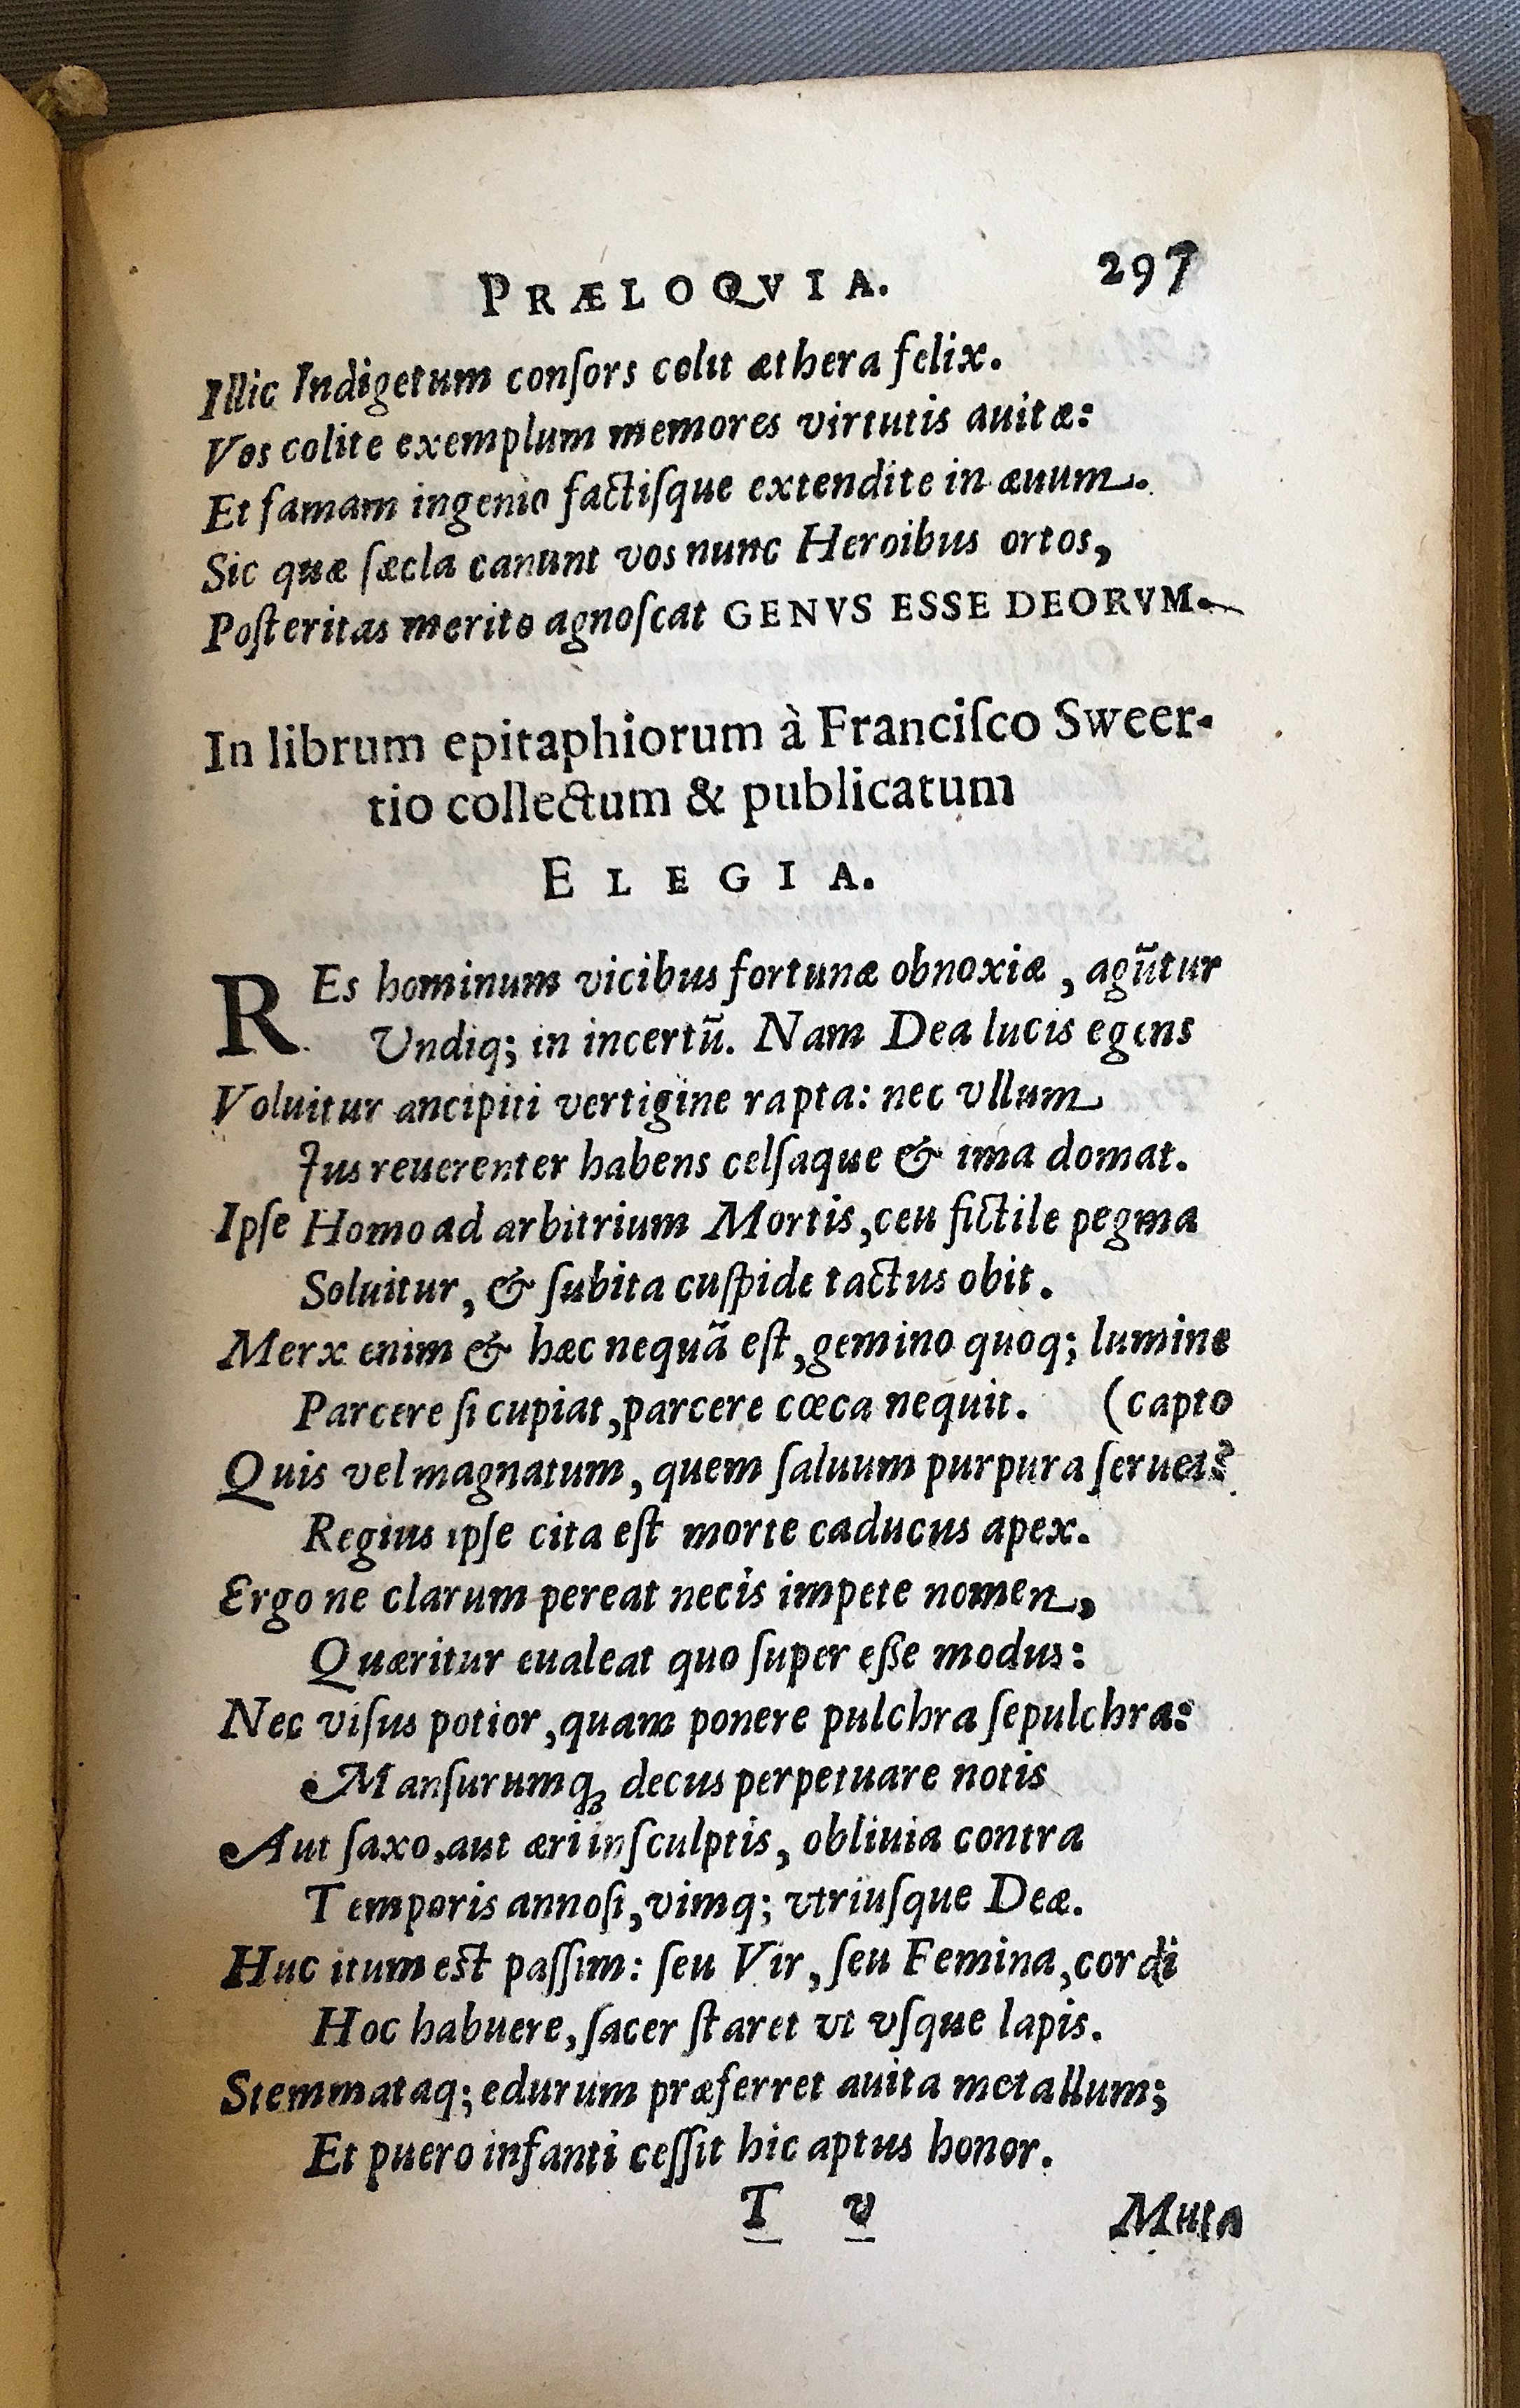 PRÆLOQVIA. 297
Illic Indigetum conſors colit æthera felix.
Vos colite exemplum memores virtutis auitæ:
Et famam ingenio factiſque extendite in æuum.
Sic quæ ſæcla canunt vos nunc Heroibus ortos,
Poſteritas merito agnoſcat GENVS ESSE DEORVM.
In librum epitaphiorum à Franciſco Sweer-
tio collectum & publicatum
ELEGIA.
REs hominum vicibus fortunæ obnoxiæ, agūtur
Undiq; in incertū. Nam Dea lucis egens
Voluitur ancipiti vertigine rapta: nec vllum
Jus reuerenter habens celſaque & ima domat.
Ipſe Homo ad arbitrium Mortis, ceu fictile pegma
Soluitur, & ſubita cuſpide tactus obit.
Merx enim & hæc nequā eſt, gemino quoq; lumine
Parcere ſi cupiat, parcere cœca nequit. (capto
Quis vel magnatum, quem ſaluum purpura ſeruet?
Regius ipſe cita eſt morte caducus apex.
Ergo ne clarum pereat necis impete nomen,
Quæritur eualeat quo ſuper eße modus:
Nec viſus potior, quam ponere pulchra ſepulchra:
Manſurumq; decus perpetuare notis
Aut ſaxo, aut æri inſculptis, obliuia contra
Temporis annoſi, vimq; vtriuſque Deæ.
Huc itum eſt paſſim: ſeu Vir, ſeu Femina, cordi
Hoc habuere, ſacer ſtaret vt vſque lapis.
Stemmataq; edurum præferret auita metallum;
Et puero infanti ceſſit hic aptus honor.
T v Muta